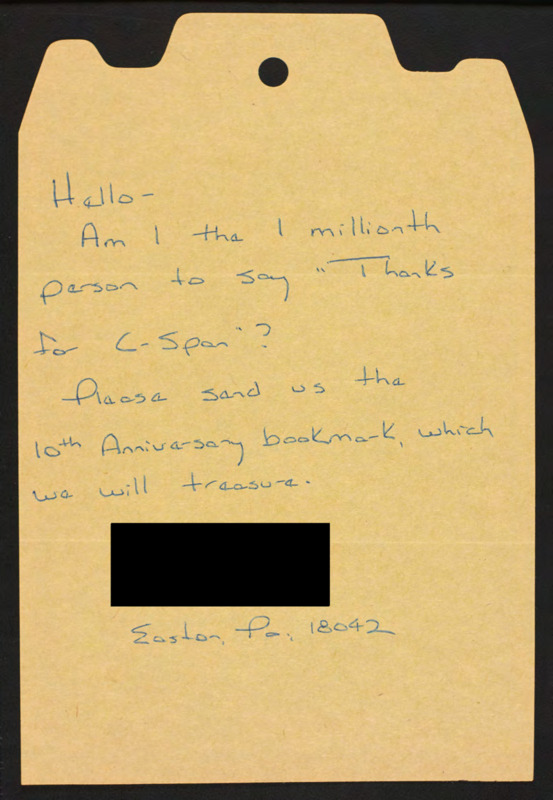 Hello-
Am I the 1 millionth
person to say "Thanks
for C-Span"?
Please send us the
10th Anniversary bookmark, which
we will treasure.
Easton, Pa. 18042